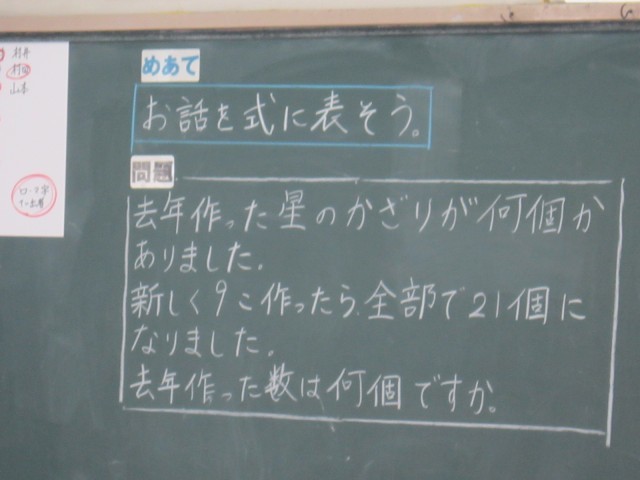 村井
村田
山本
めあて
お話を式に表そう。
問題
去年作った星のかざりが何個か
ありました。
新しく9こ作ったら、全部で21個に
なりました。
去年作った数は何個ですか。